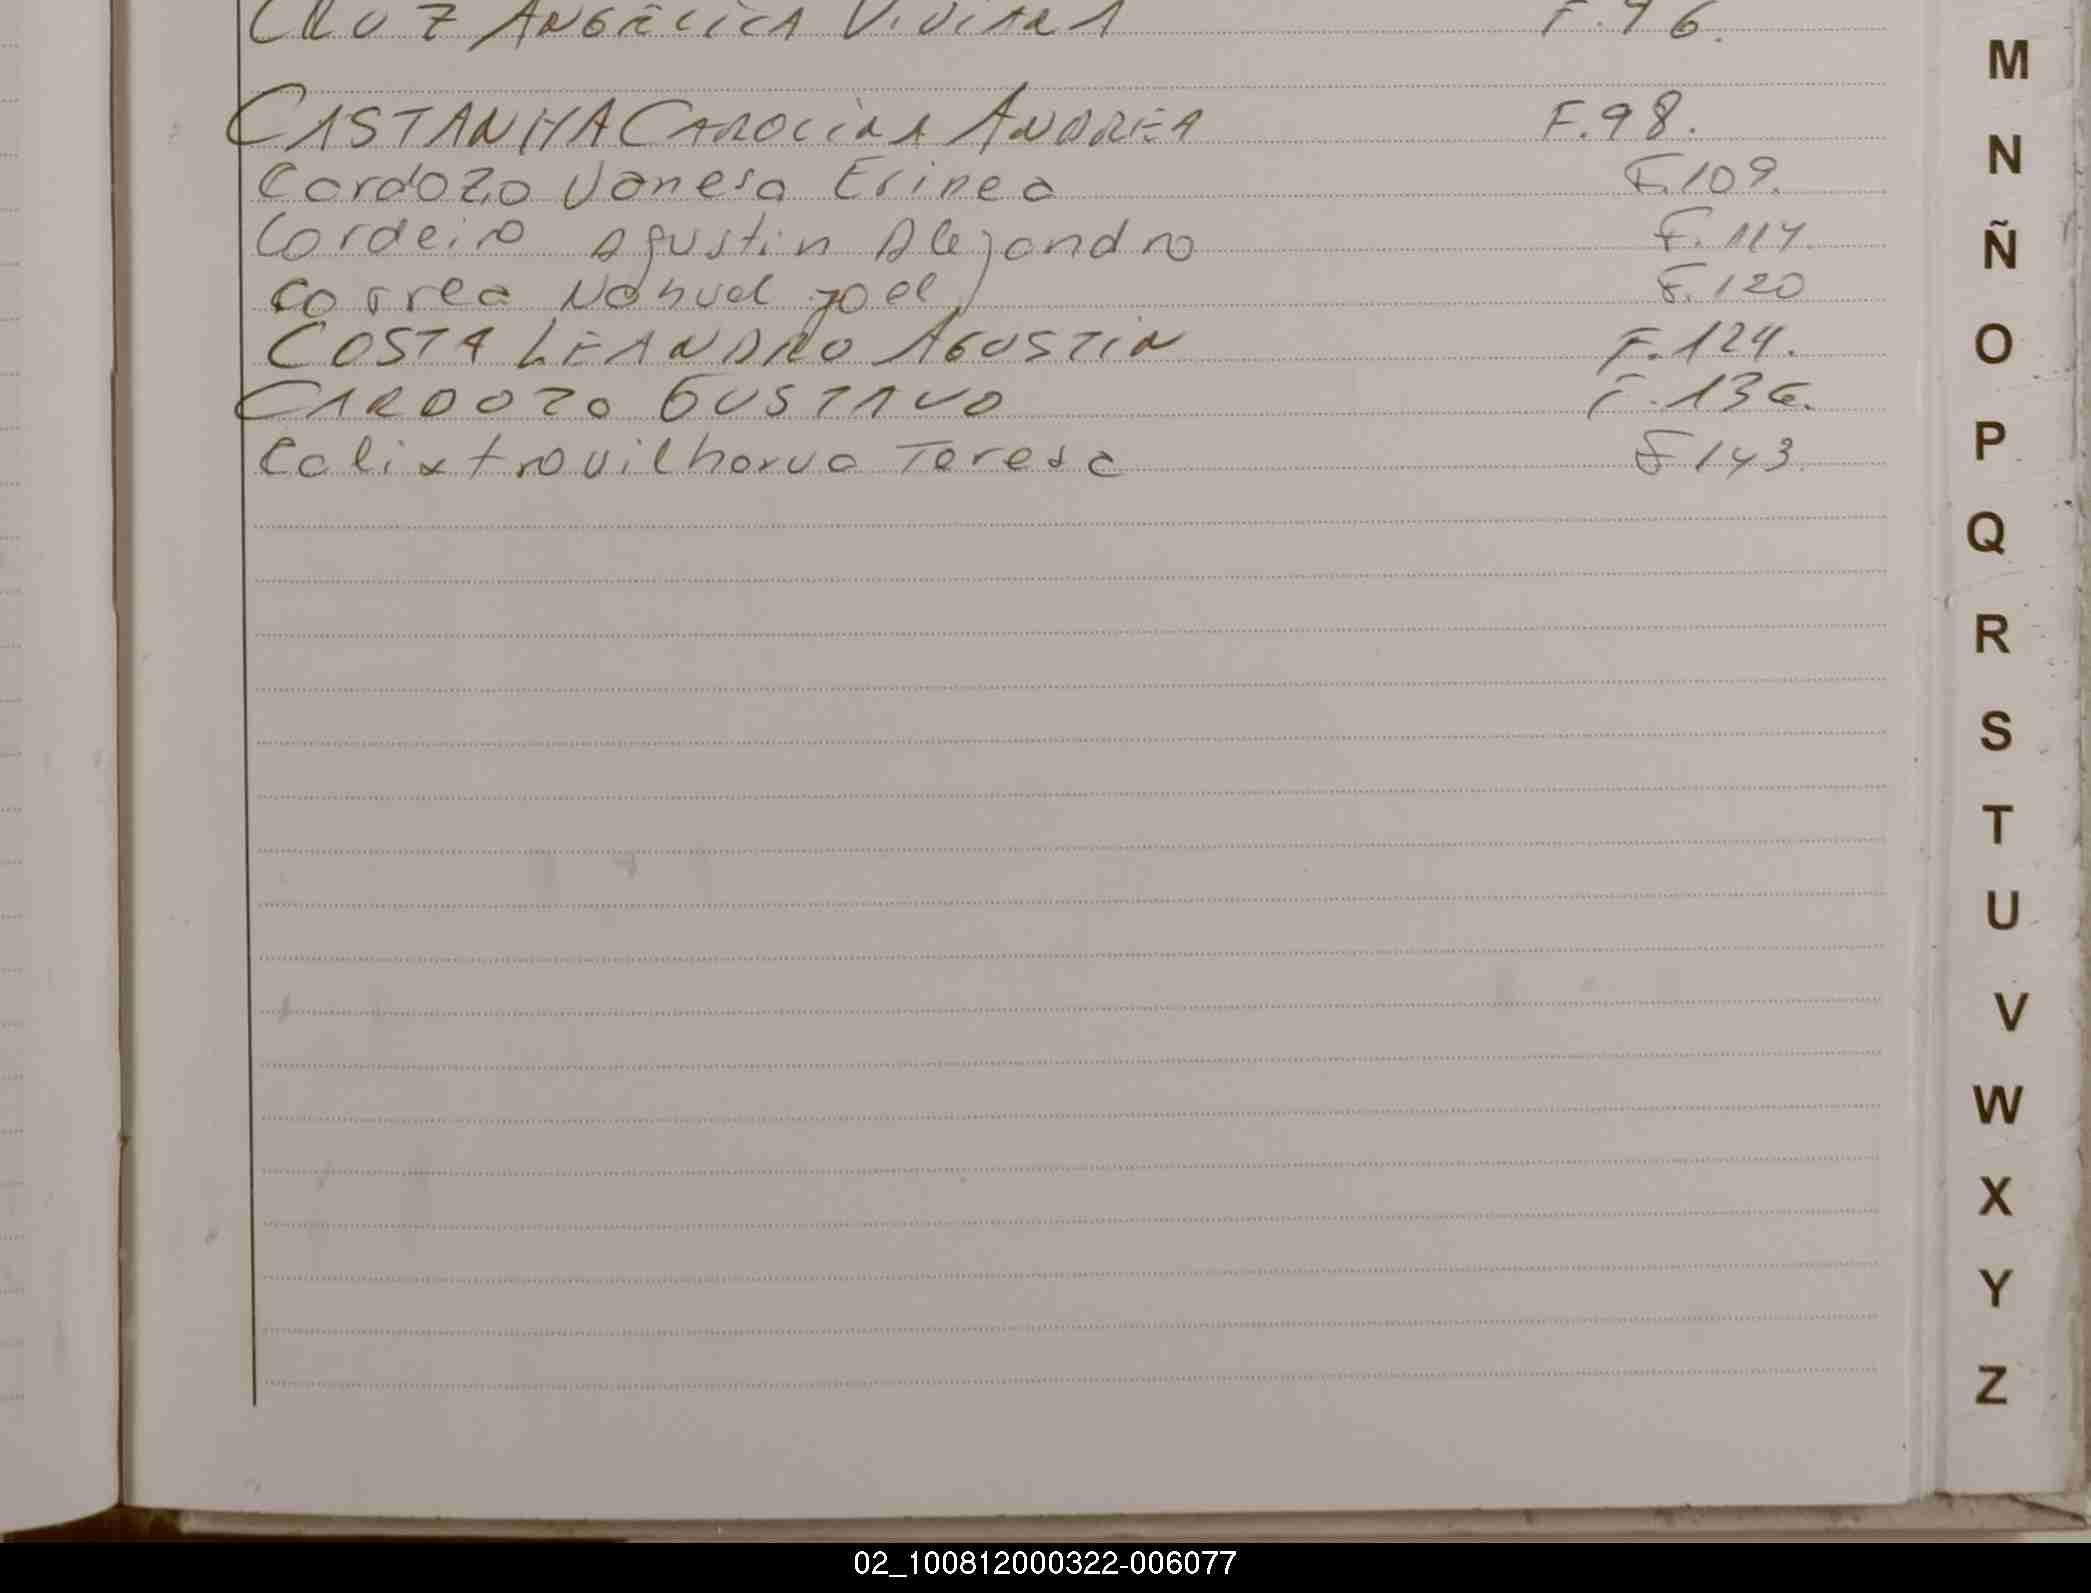 CRUZ ANGELICA VIVIANA F.96.
CASTANHA CAROLINA ANDREA F.98.
Cardozo Vanesa Erinea F.109.
Cordeiro Agustin Alejandro F.114.
Correa Nahuel Joel F.120
COSTA LEANDRO AGUSTIN F.124.
CARDOZO GUSTAVO F.136.
Calixtro Teresa F143.
M
N
Ñ
O
P
Q
R
S
T
U
V
W
X
Y
Z
02_100812000322-006077